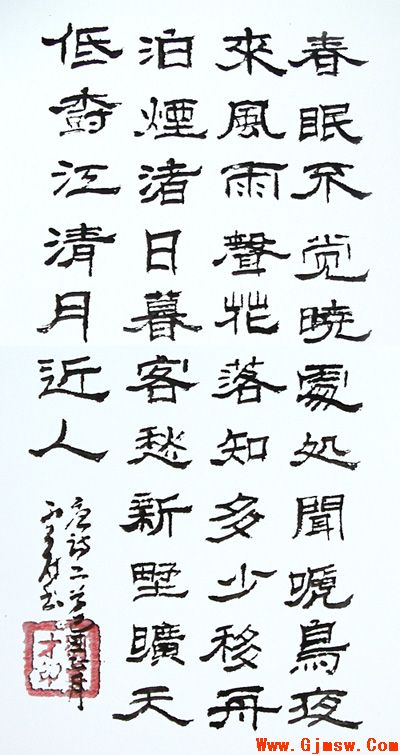 春眠不觉暁處処聞嗁鳥夜
來風雨聲花落知多少移舟
泊煙渚日暮客愁新墅曠天
低樹江清月近人
唐詩二首
才印
Www.Gjmsw.Com